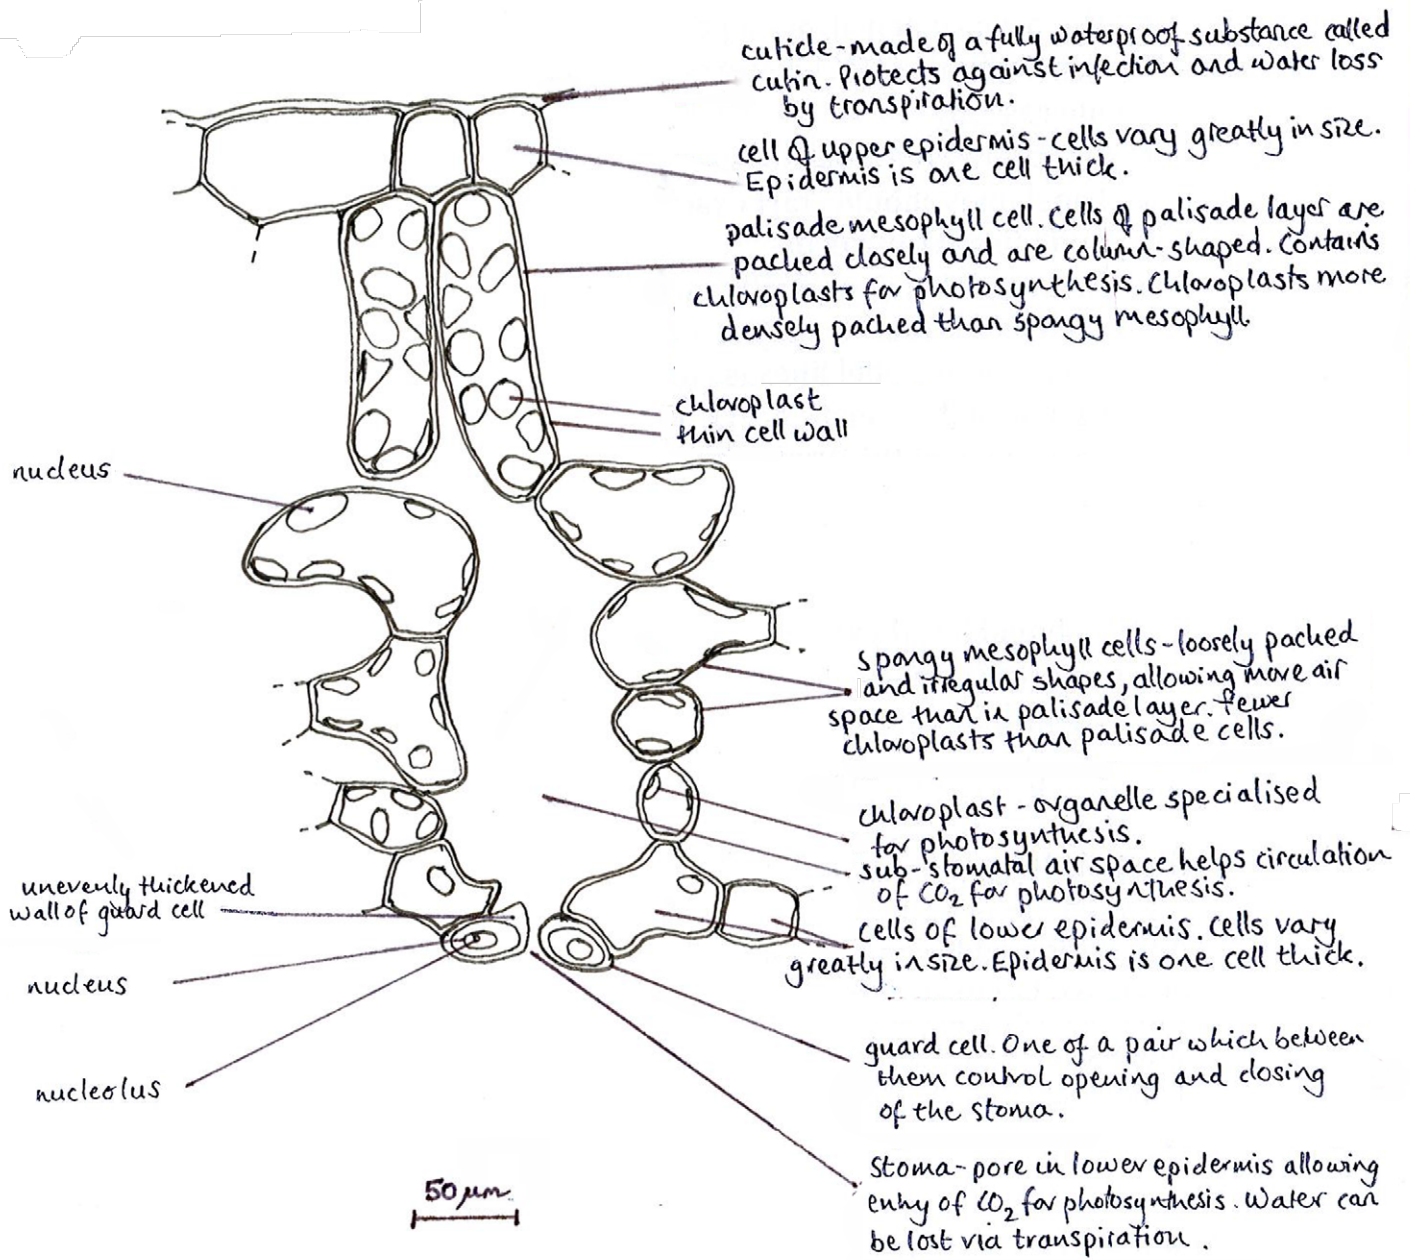 cuticle-made of a fully waterproof substance called
cutin. Protects against infection and water loss
by transpiration.
cell of upper epidermis-cells vary greatly in size.
Epidermis is one cell thick.
palisade mesophyll cell. Cells of palisade layer are
packed closely and are column-shaped. Contains
chloroplasts for photosynthesis. Chloroplasts more
densely packed than spongy mesophyll.
chloroplast
thin cell wall
nucleus
spongy mesophyll cells-loosely packed
and irregular shapes, allowing more air
space than in palisade layer. fewer
chloroplasts than palisade cells.
chloroplast - organelle specialised
for photosynthesis.
sub-stomatal air space helps circulation
of CO₂ for photosynthesis.
unevenly thickened
wall of guard cell
cells of lower epidermis. Cells vary
greatly in size. Epidermis is one cell thick.
nucleus
guard cell. One of a pair which between
them control opening and closing
of the stoma.
nucleolus
Stoma-pore in lower epidermis allowing
entry of CO₂ for photosynthesis. Water can
be lost via transpiration.
50 μm